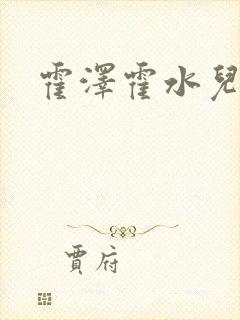 霍澤霍水兒
賈府